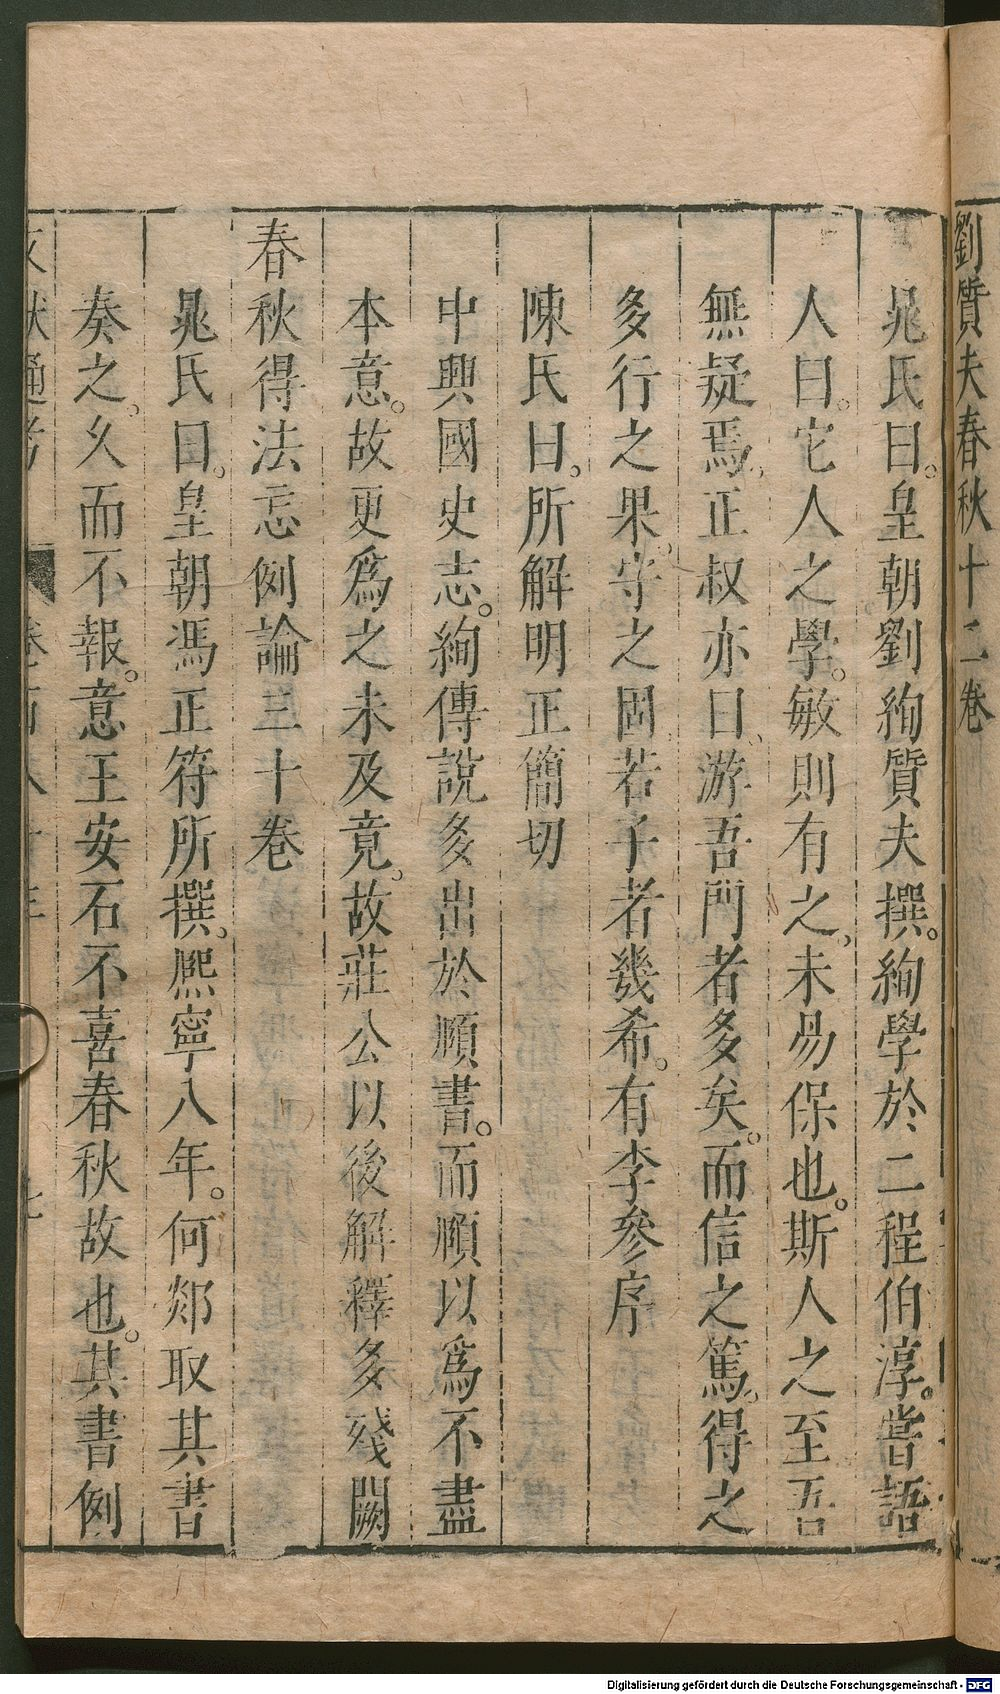 劉質夫春秋十二卷
晁氏曰。皇朝劉絢質夫撰。絢學於二程伯淳。嘗語
人曰。它人之學。敏則有之、未易保也。斯人之至吾
無疑焉、正叔亦曰、游吾門者多矣。而信之篤、得之
多行之果、守之固若子者幾希。有李參序
陳氏曰、所解明正簡切
中興國史志。絢傳說多出於頤書。而頤以為不盡
本意。故更為之未及竟、故莊公以後解釋多殘闕
春秋得法忘例論三十卷
晁氏曰、皇朝馮正符所撰、熈寧八年。何郯取其書
奏之、久而不報。意王安石不喜春秋故也。其書例
文獻通考
Digitalisierung gefördert durch die Deutsche Forschungsgemeinschaft - DFG